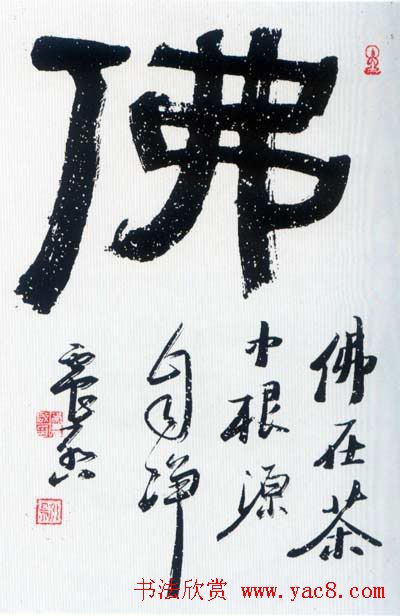 佛
佛在茶
中根源
自净
书法欣赏 www.yac8.com